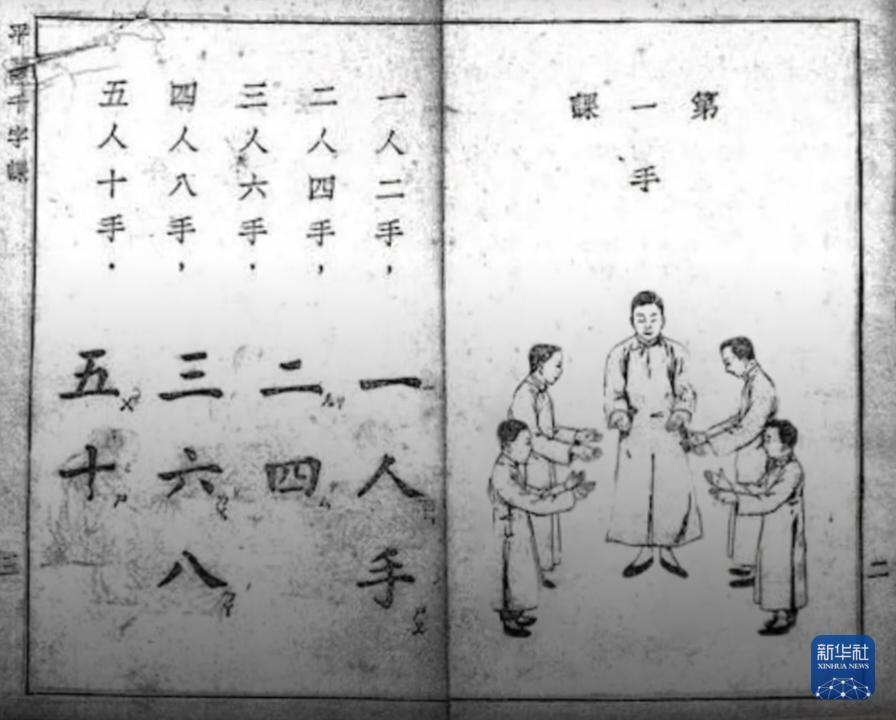 第一課
手
二
一人二手，
二人四手，
三人六手．
四人八手，
五人十手．
一人手
二四
三六八
五十
平 千字課
三
新华社
XINHUA NEWS